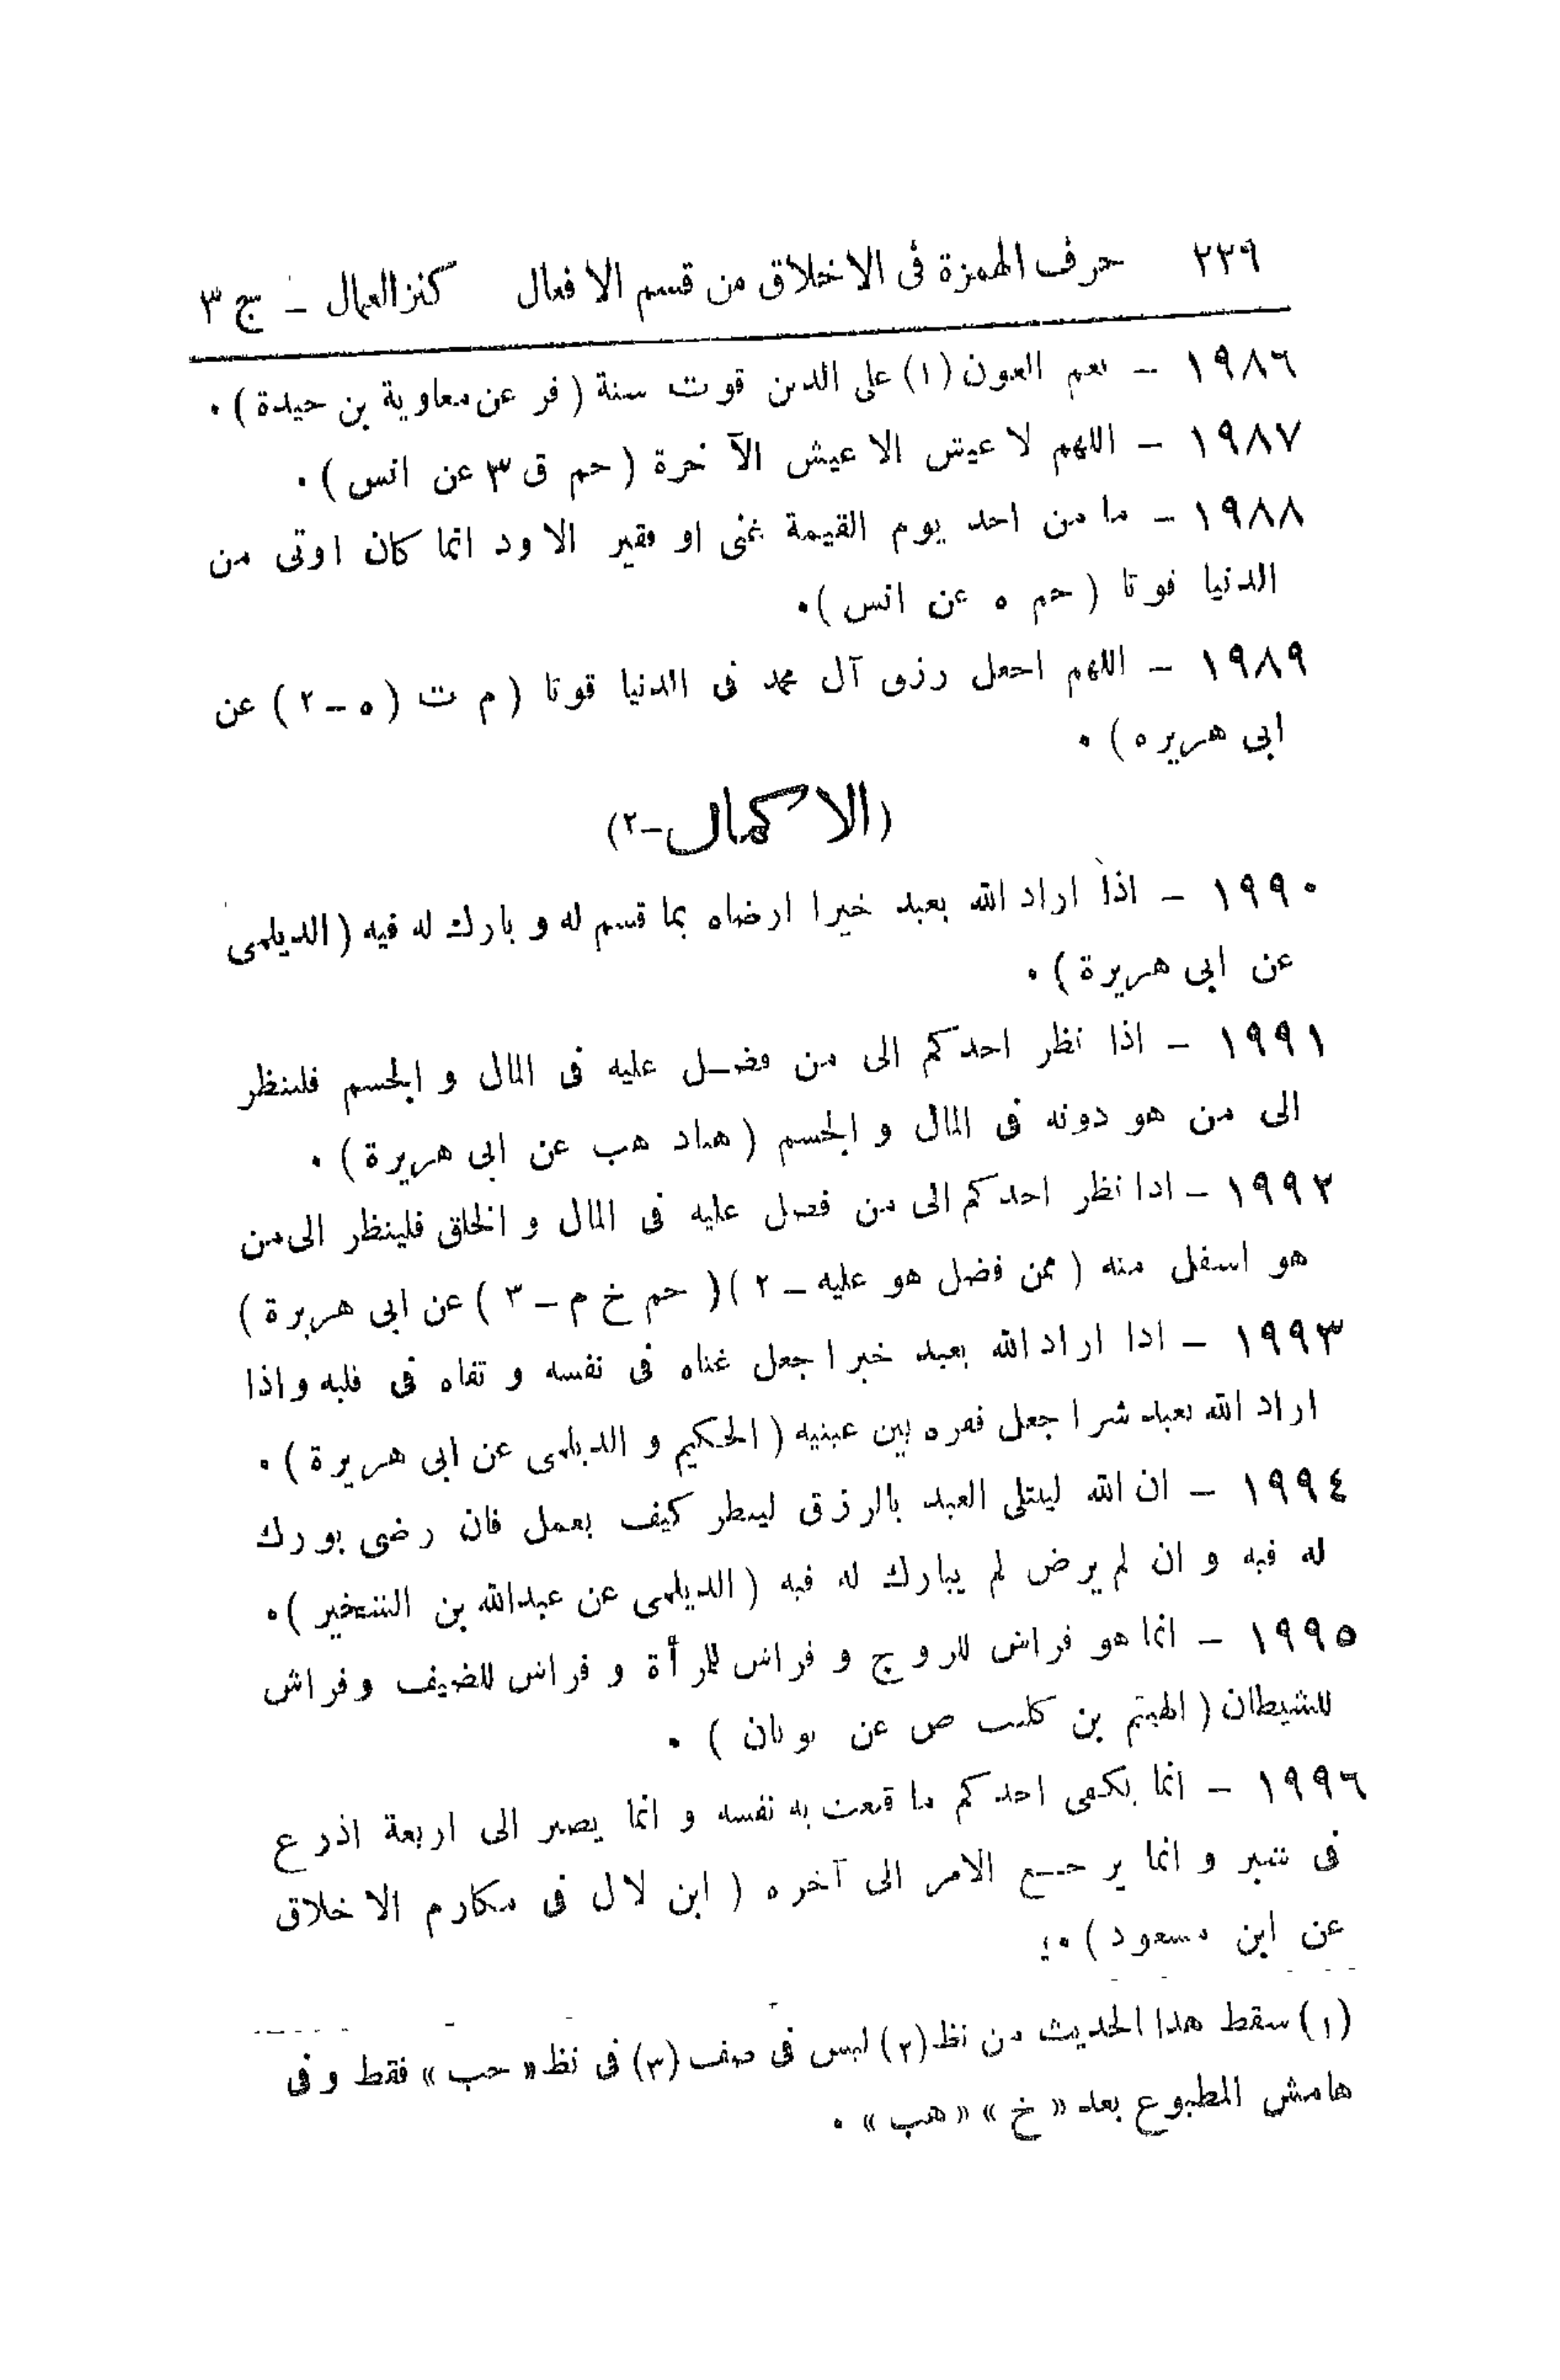 ٢٣٩ حرف الهمزة فى الاخلاق من قسم الافعال كنزالعمال - ج ٣
١٩٨٦ - نعم العون (١) على الدين قوت سنة ( فر عن معاوية بن حيدة ) .
١٩٨٧ - اللهم لا عيش الا عيش الآخرة ( حم ق ٣ عن انس ) .
١٩٨٨ - ما من احد يوم القيمة غنى او فقير الا ود انما كان اوتى من
الدنيا قوتا ( حم ه عن انس ) .
١٩٨٩ - اللهم اجعل رزق آل محمد فى الدنيا قوتا ( م ت ( ه - ٢ ) عن
ابى هريره ) .
( الاكمال - ٢ )
١٩٩٠ - اذا اراد الله بعبد خيرا ارضاه بما قسم له و بارك له فيه ( الديلمى
عن ابى هريرة ) .
١٩٩١ - اذا نظر احدكم الى من فضل عليه فى المال و الجسم فلينظر
الى من هو دونه فى المال و الجسم ( هناد هب عن ابى هريرة ) .
١٩٩٢ - اذا نظر احدكم الى من فضل عليه فى المال و الخلق فلينظر الى من
هو اسفل منه ( ممن فضل هو عليه - ٢ ) ( حم خ م - ٣ ) عن ابى هريرة )
١٩٩٣ - اذا اراد الله بعبد خيرا جعل غناه فى نفسه و تقاه فى قلبه واذا
اراد الله بعبد شرا جعل فقره بين عينيه ( الحكيم و الديلمى عن ابى هريرة ) .
١٩٩٤ - ان الله ليبتلى العبد بالرزق لينظر كيف يعمل فان رضى بورك
له فيه و ان لم يرض لم يبارك له فيه ( الديلمى عن عبدالله بن الشخير ) .
١٩٩٥ - انما هو فراش للزوج و فراش للمرأة و فراش للضيف وفراش
للشيطان ( الهيثم بن كليب ص عن ثوبان ) .
١٩٩٦ - انما يكفى احدكم ما قنعت به نفسه و انما يصير الى اربعة اذرع
فى شبر و انما يرجع الامر الى آخره ( ابن لال فى مكارم الاخلاق
عن ابن مسعود ) .
(١) سقط هذا الحديث من نظ (٢) ليس فى صف (٣) فى نظ « حب » فقط وفى
هامش المطبوع بعد « خ » « هب » .